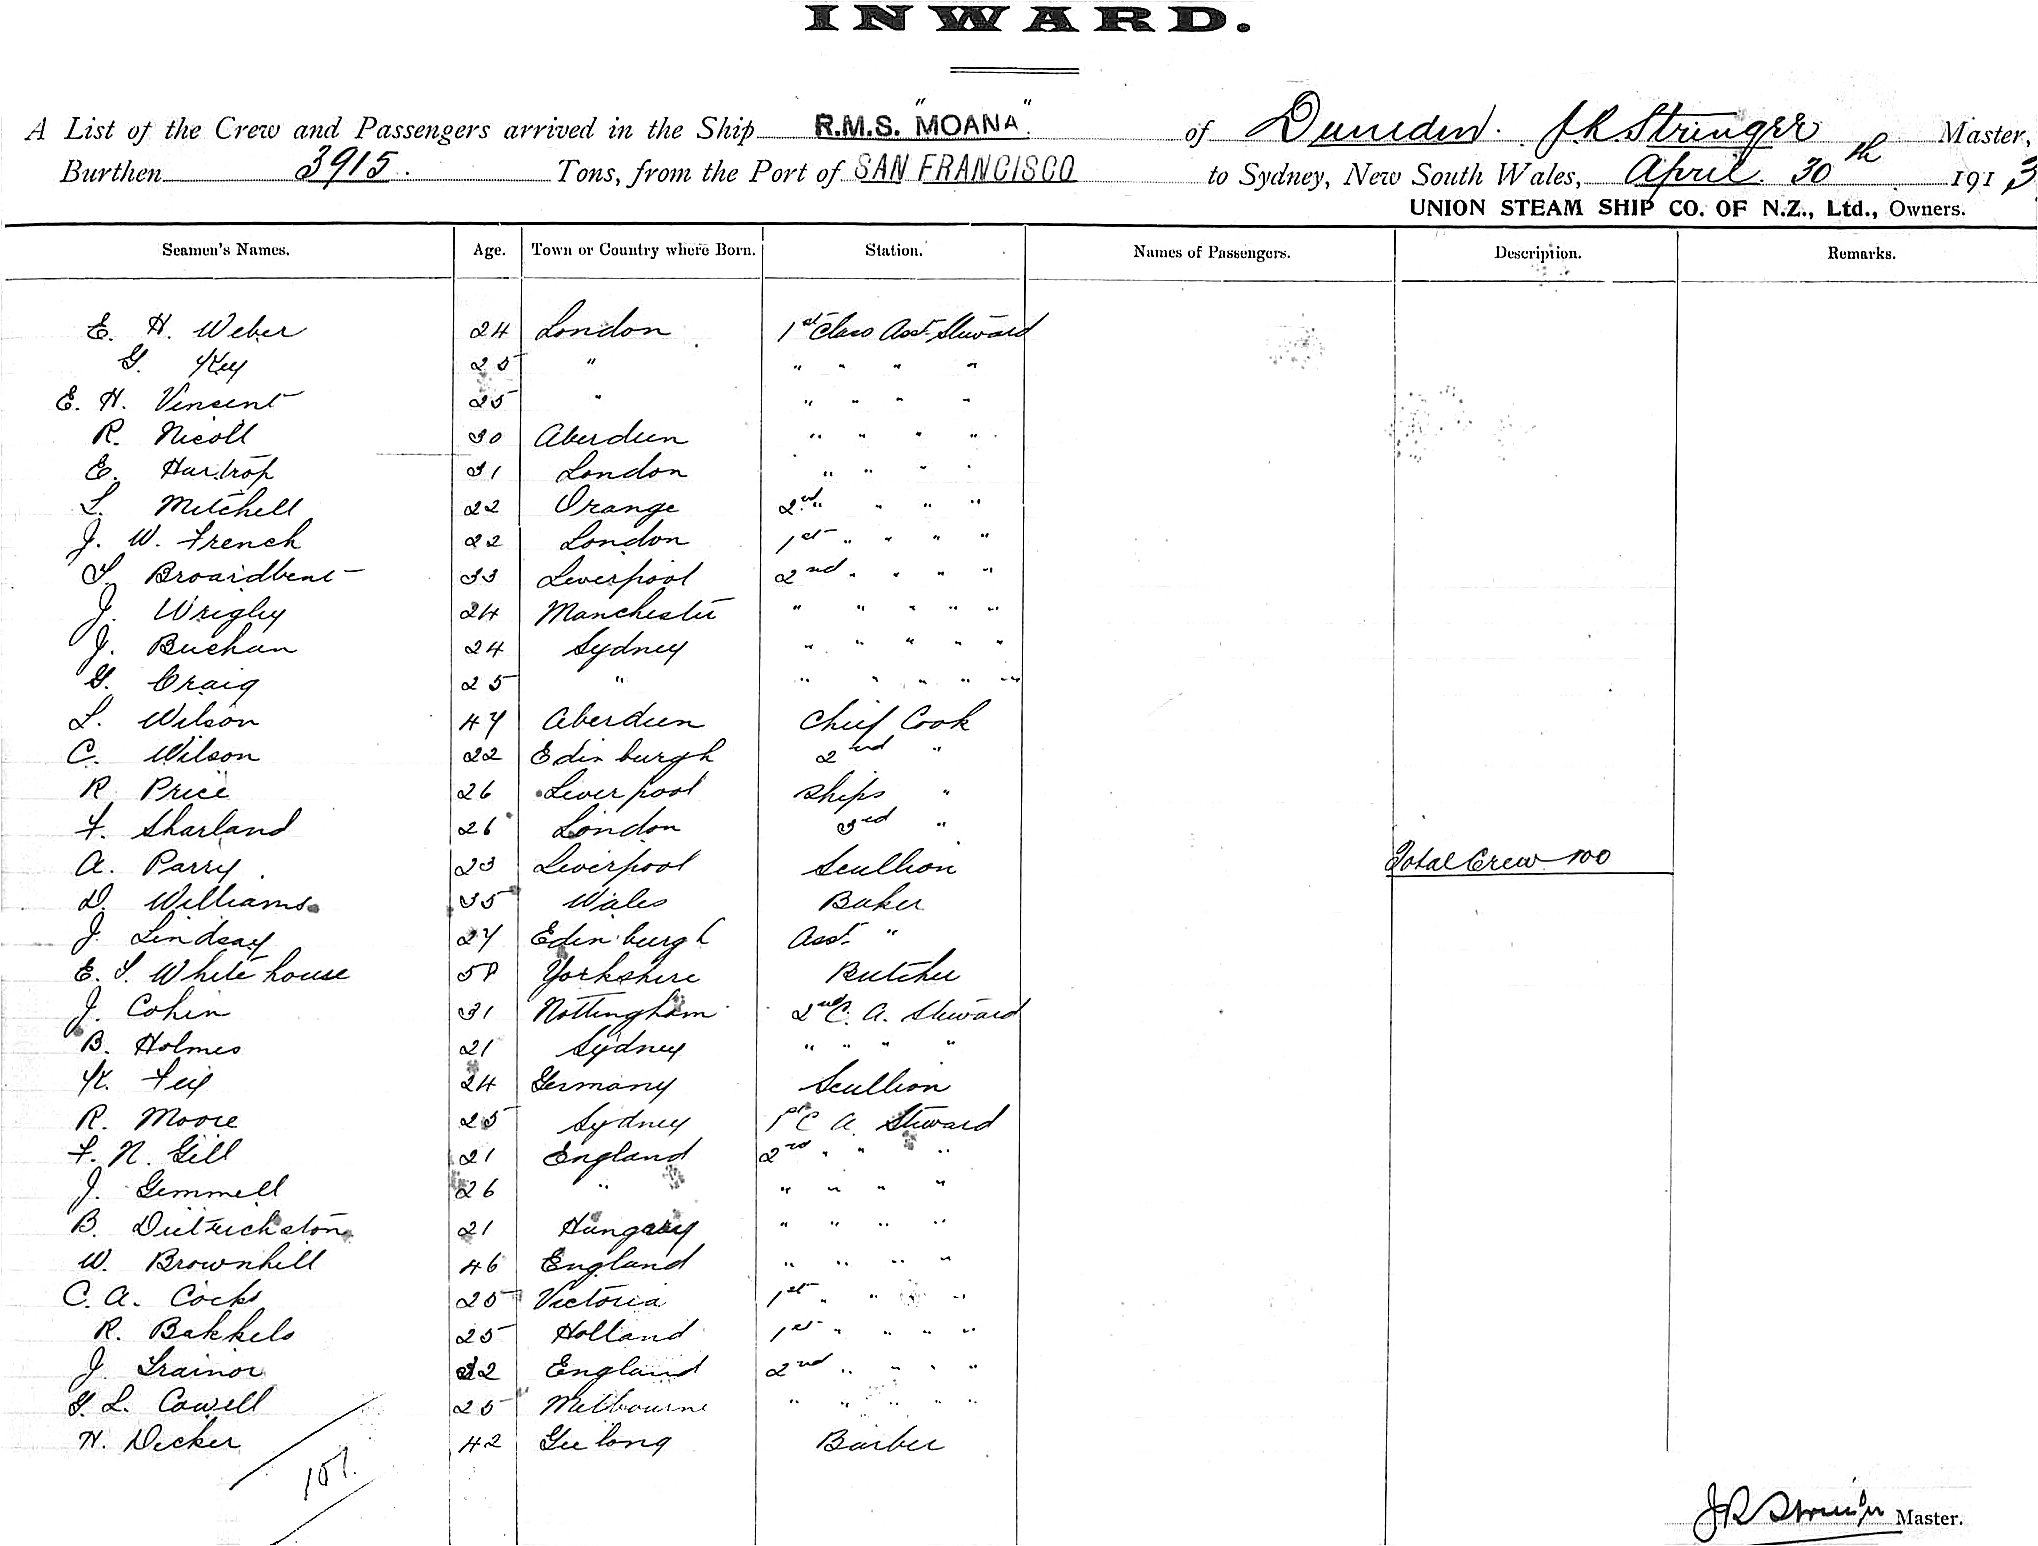 INWARD.
A List of the Crew and Passengers arrived in the Ship R.M.S. "MOANA" of Dunedin. J.R. Stringer Master,
Burthen 3915. Tons, from the Port of SAN FRANCISCO to Sydney, New South Wales, April 30th 1913
UNION STEAM SHIP CO. OF N.Z., Ltd., Owners.
Seamen's Names. Age. Town or Country where Born. Station. Names of Passengers. Description. Remarks.
E. H. Weber 24 London 1st Class Asst. Steward
G. Key 25 " " " " "
E. H. Vincent 25 " " " " "
R. Nicoll 30 Aberdeen " " " "
E. Hartrop 31 London " " " "
L. Mitchell 22 Orange 2nd " " " "
J. W. French 22 London 1st " " " "
S. Broardbent 33 Liverpool 2nd " " " "
J. Wrigley 24 Manchester " " " " "
J. Buchan 24 Sydney " " " " "
G. Craig 25 " " " " " "
L. Wilson 47 Aberdeen Chief Cook
C. Wilson 22 Edinburgh 2nd "
R Price 26 Liverpool Ships "
F. Sharland 26 London 3rd "
A. Parry. 23 Liverpool Scullion Total Crew 100
D. Williams 35 Wales Baker
J. Lindsay 27 Edinburgh Asst. "
E. S. Whitehouse 58 Yorkshire Butcher
J. Cohen 31 Nottingham 2nd C. A. Steward
B. Holmes 21 Sydney " " " "
K. Feix 24 Germany Scullion
R. Moore 25 Sydney 1st C A. Steward
F. N. Gill 21 England 2nd " " "
J. Gemmell 26 " " " " "
B. Dietrichston 21 Hungary " " " "
W. Brownhill 46 England " " " "
C. A. Cocks 25 Victoria 1st " " " "
R. Bakkels 25 Holland 1st " " " "
J. Trainor 32 England 2nd " " " "
G. L. Cowell 25 Melbourne " " " " "
H. Decker 42 Geelong Barber
101.
J R Stringer Master.